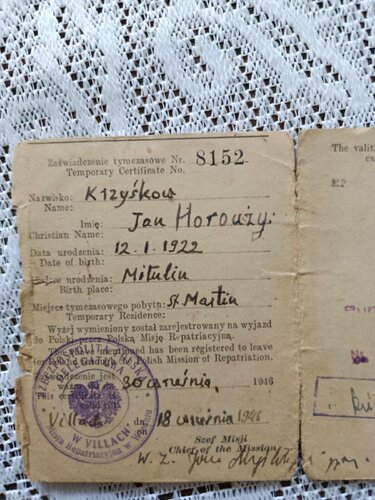 Zaświadczenie tymczasowe Nr. 8152
Temporary Certificate No.
Nazwisko: Krzyśków
Name:
Imię: Jan Horouży.
Christian Name:
Data urodzenia: 12.1.1922
Date of birth:
Miejsce urodzenia: Mitulin
Birth place:
Miejsce tymczasowego pobytu: st Martin
Temporary Residence:
Wyżej wymieniony został zarejestrowany na wyjazd
do Polski przez Polską Misję Repatriacyjną.
The above mentioned has been registered to leave
for Poland Polish Mission of Repatriation.
Zaświadczenie jest
ważne do dn. 30 września, 1946
This certificate is
valid till
Villach, dn. 18 września 1946
Szef Misji
Chief of the Mission
W. Z.
W VILLACH
Misja Repatriacyjna w Wiedniu
The vali
ca
MP.